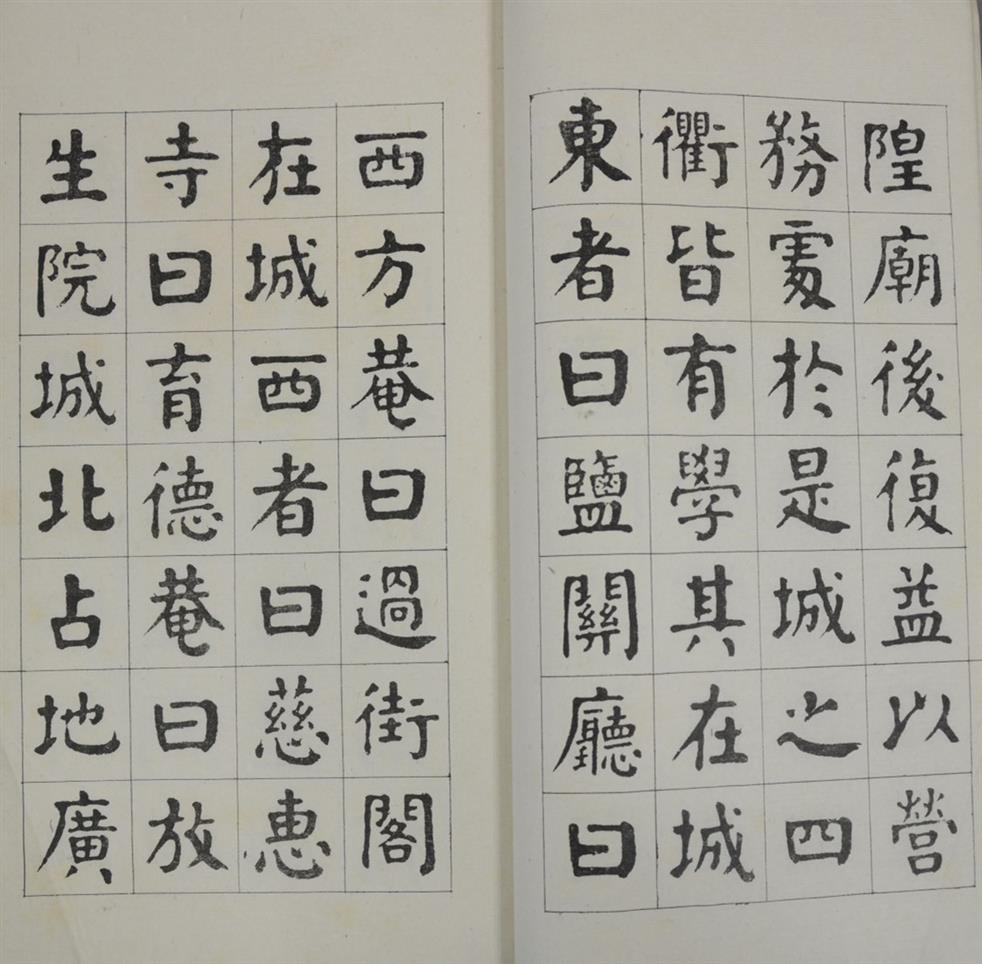 隍廟後復益以營
務處於是城之四
衢皆有學其在城
東者曰鹽關廳曰
西方菴曰過街閣
在城西者曰慈惠
寺曰育德菴曰放
生院城北占地廣